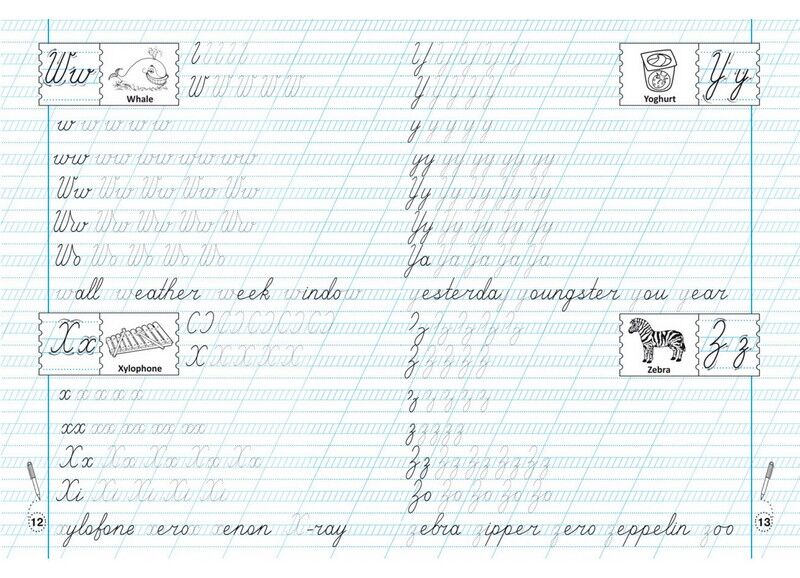 Ww
Whale
W W W W W W
w w w w w
ww ww ww ww ww ww
Ww Ww Ww Ww Ww
Wo Wo Wo Wo Wo
wall weather week window
Xx
Xylophone
X X X X X X
x x x x x
xx xx xx xx xx xx
Xx Xx Xx Xx Xx
Xi Xi Xi Xi Xi
xylofone xerox xenon X-ray
12
Yy
Yoghurt
Y Y Y Y Y
y y y y y
yy yy yy yy yy
Yy Yy Yy Yy Yy
Yy Yy Yy Yy Yy
Ya Ya Ya Ya Ya
yesterday youngster you year
Zz
Zebra
Z Z Z Z Z Z
z z z z z z
z z z z z
Zz Zz Zz Zz Zz Zz
Zo Zo Zo Zo Zo
zebra zipper zero zeppelin zoo
13